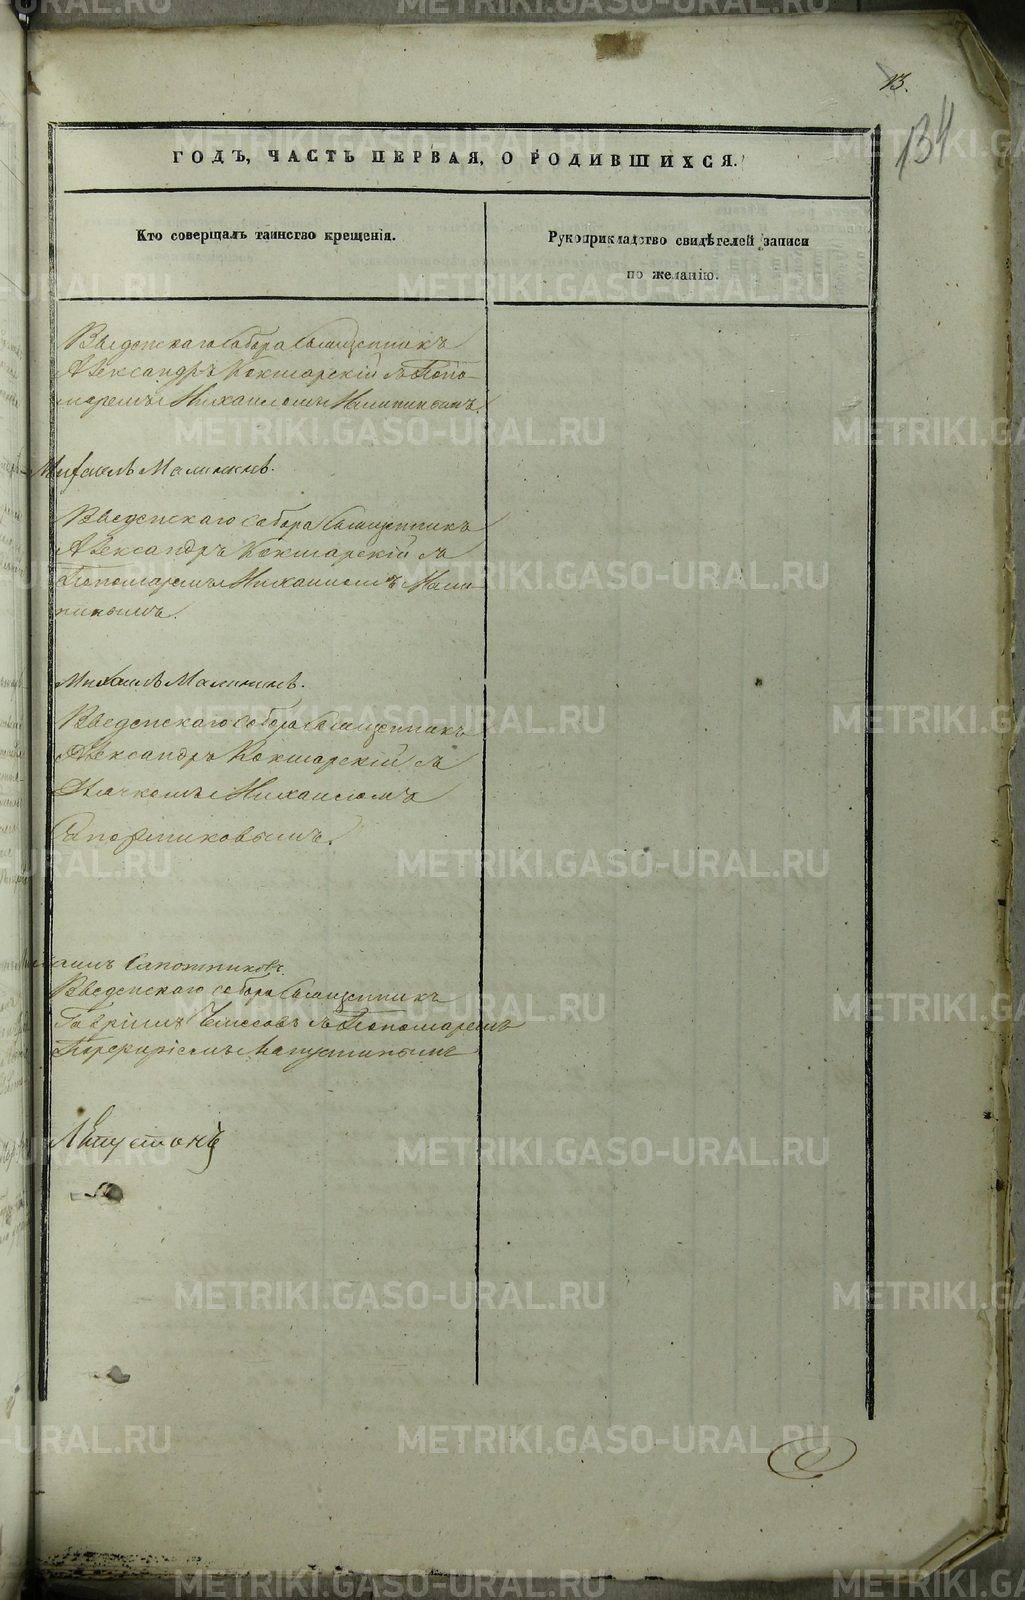 13.
134
ГОДЪ, ЧАСТЬ ПЕРВАЯ, О РОДИВШИХСЯ.
Кто совершалъ таинство крещенія.
Рукоприкладство свидѣтелей записи
по желанію.
Введенскаго Собора Священникъ
Александръ Кокшарскій съ Поно-
маремъ Михаиломъ Малининымъ.
Михаилъ Малининъ.
Введенскаго собора Священникъ
Александръ Кокшарскій съ
Пономаремъ Михаиломъ Мали-
нинымъ.
Михаилъ Малининъ.
Введенскаго собора Священникъ
Александръ Кокшарскій съ
Дьячкомъ Михаиломъ
Сапожниковымъ.
Сапожниковъ.
Введенскаго собора Священникъ
Гавріилъ съ Пономаремъ
Порфиріемъ Капустинымъ
METRIKI.GASO-URAL.RU